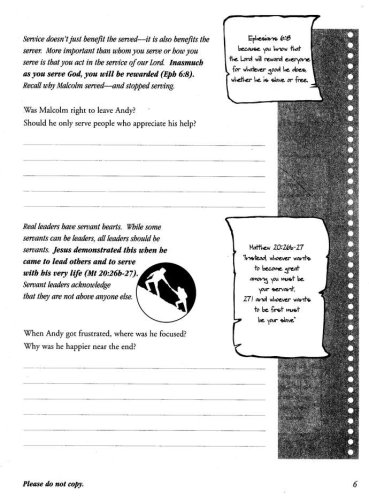 Service doesn't just benefit the served—it is also benefits the
server. More important than whom you serve or how you
serve is that you act in the service of our Lord. Inasmuch
as you serve God, you will be rewarded (Eph 6:8).
Recall why Malcolm served—and stopped serving.
Ephesians 6:8
because you know that
the Lord will reward everyone
for whatever good he does,
whether he is slave or free.
Was Malcolm right to leave Andy?
Should he only serve people who appreciate his help?
Real leaders have servant hearts. While some
servants can be leaders, all leaders should be
servants. Jesus demonstrated this when he
came to lead others and to serve
with his very life (Mt 20:26b-27).
Servant leaders acknowledge
that they are not above anyone else.
Matthew 20:26b-27
"Instead, whoever wants
to become great
among you must be
your servant,
27) and whoever wants
to be first must
be your slave"
When Andy got frustrated, where was he focused?
Why was he happier near the end?
Please do not copy.
6